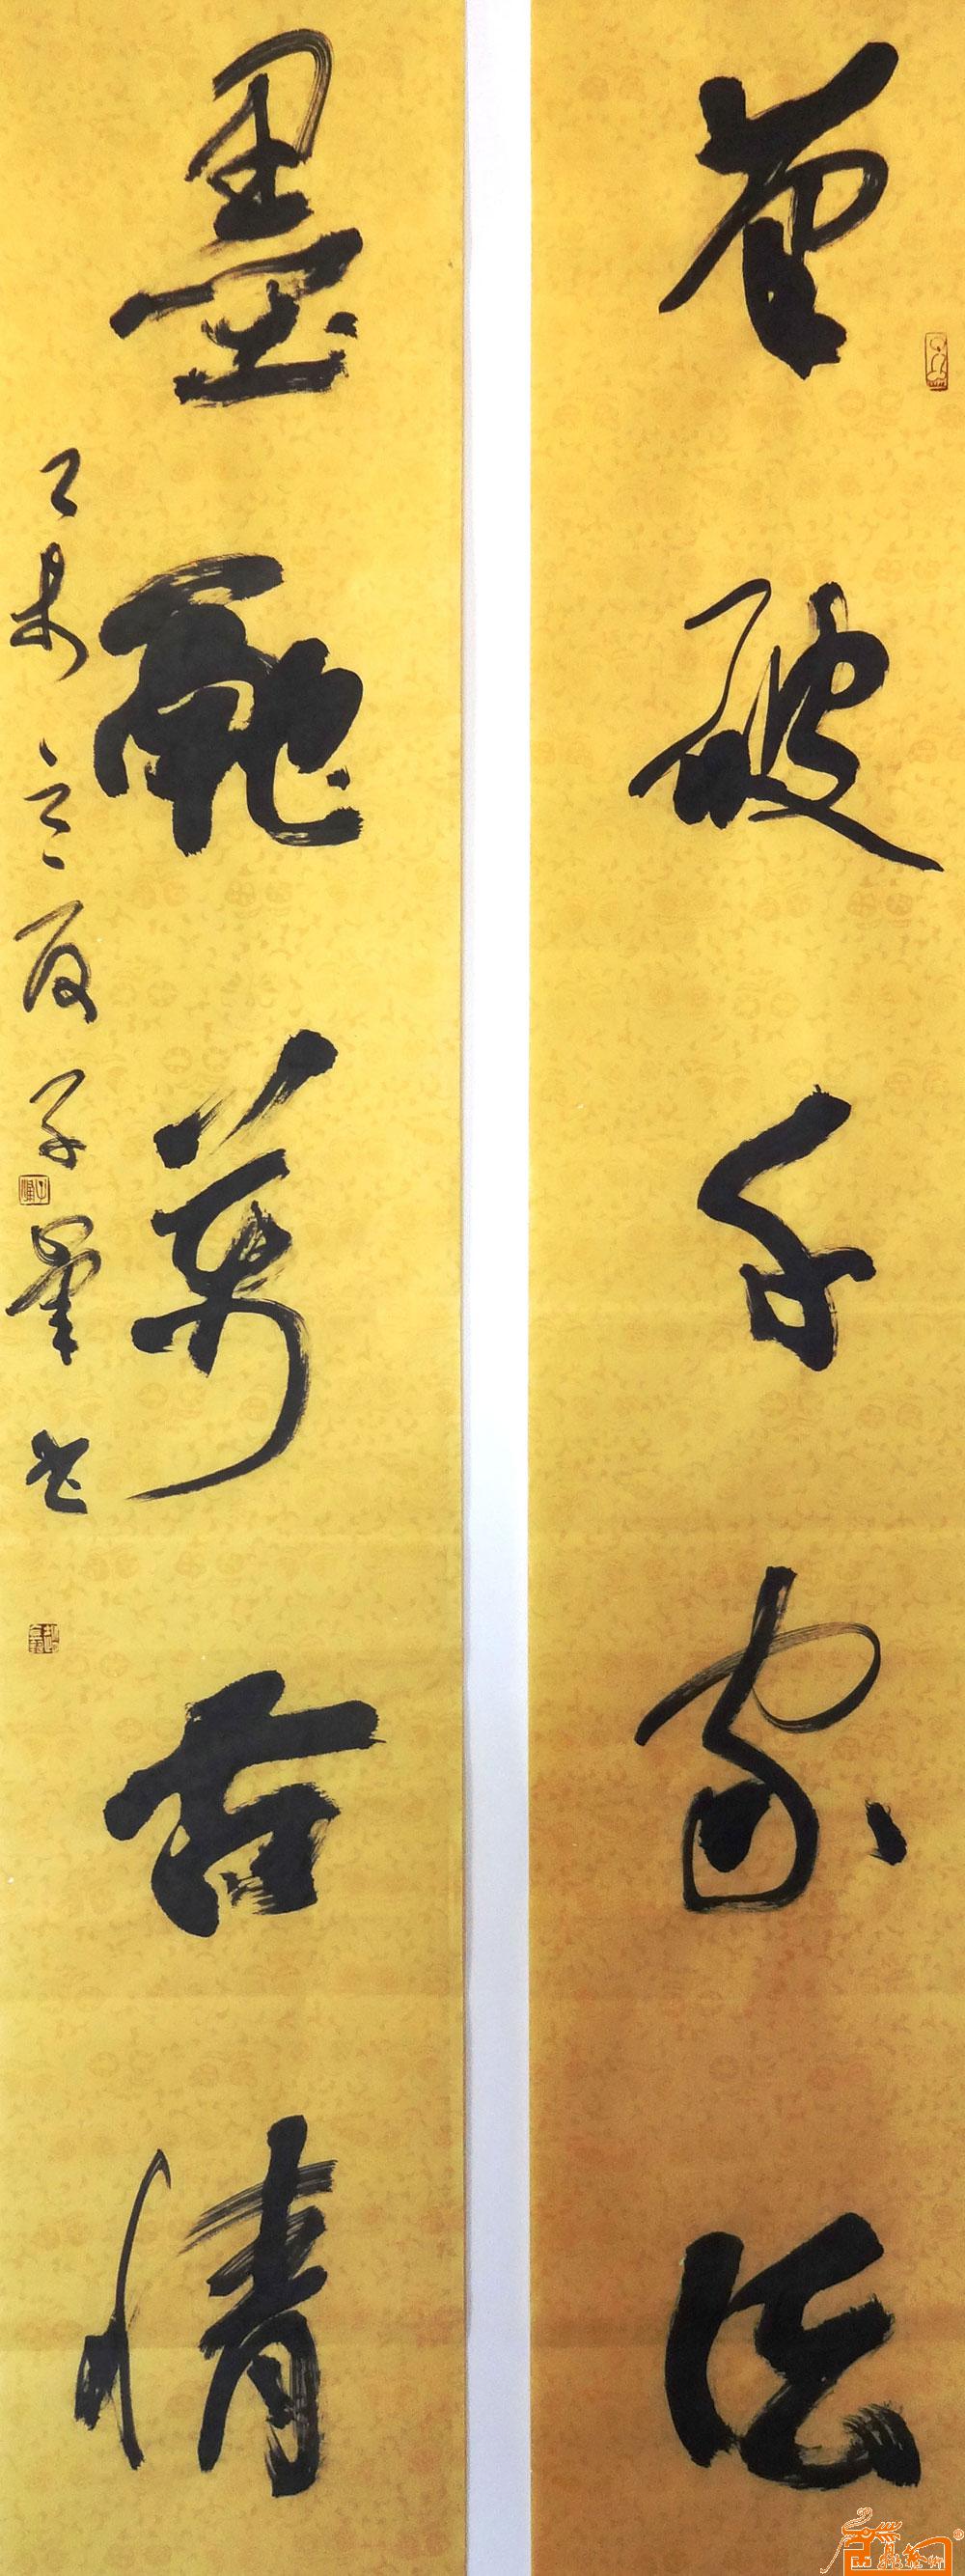 笔破千家法
墨融万古情
乙未之夏子量书